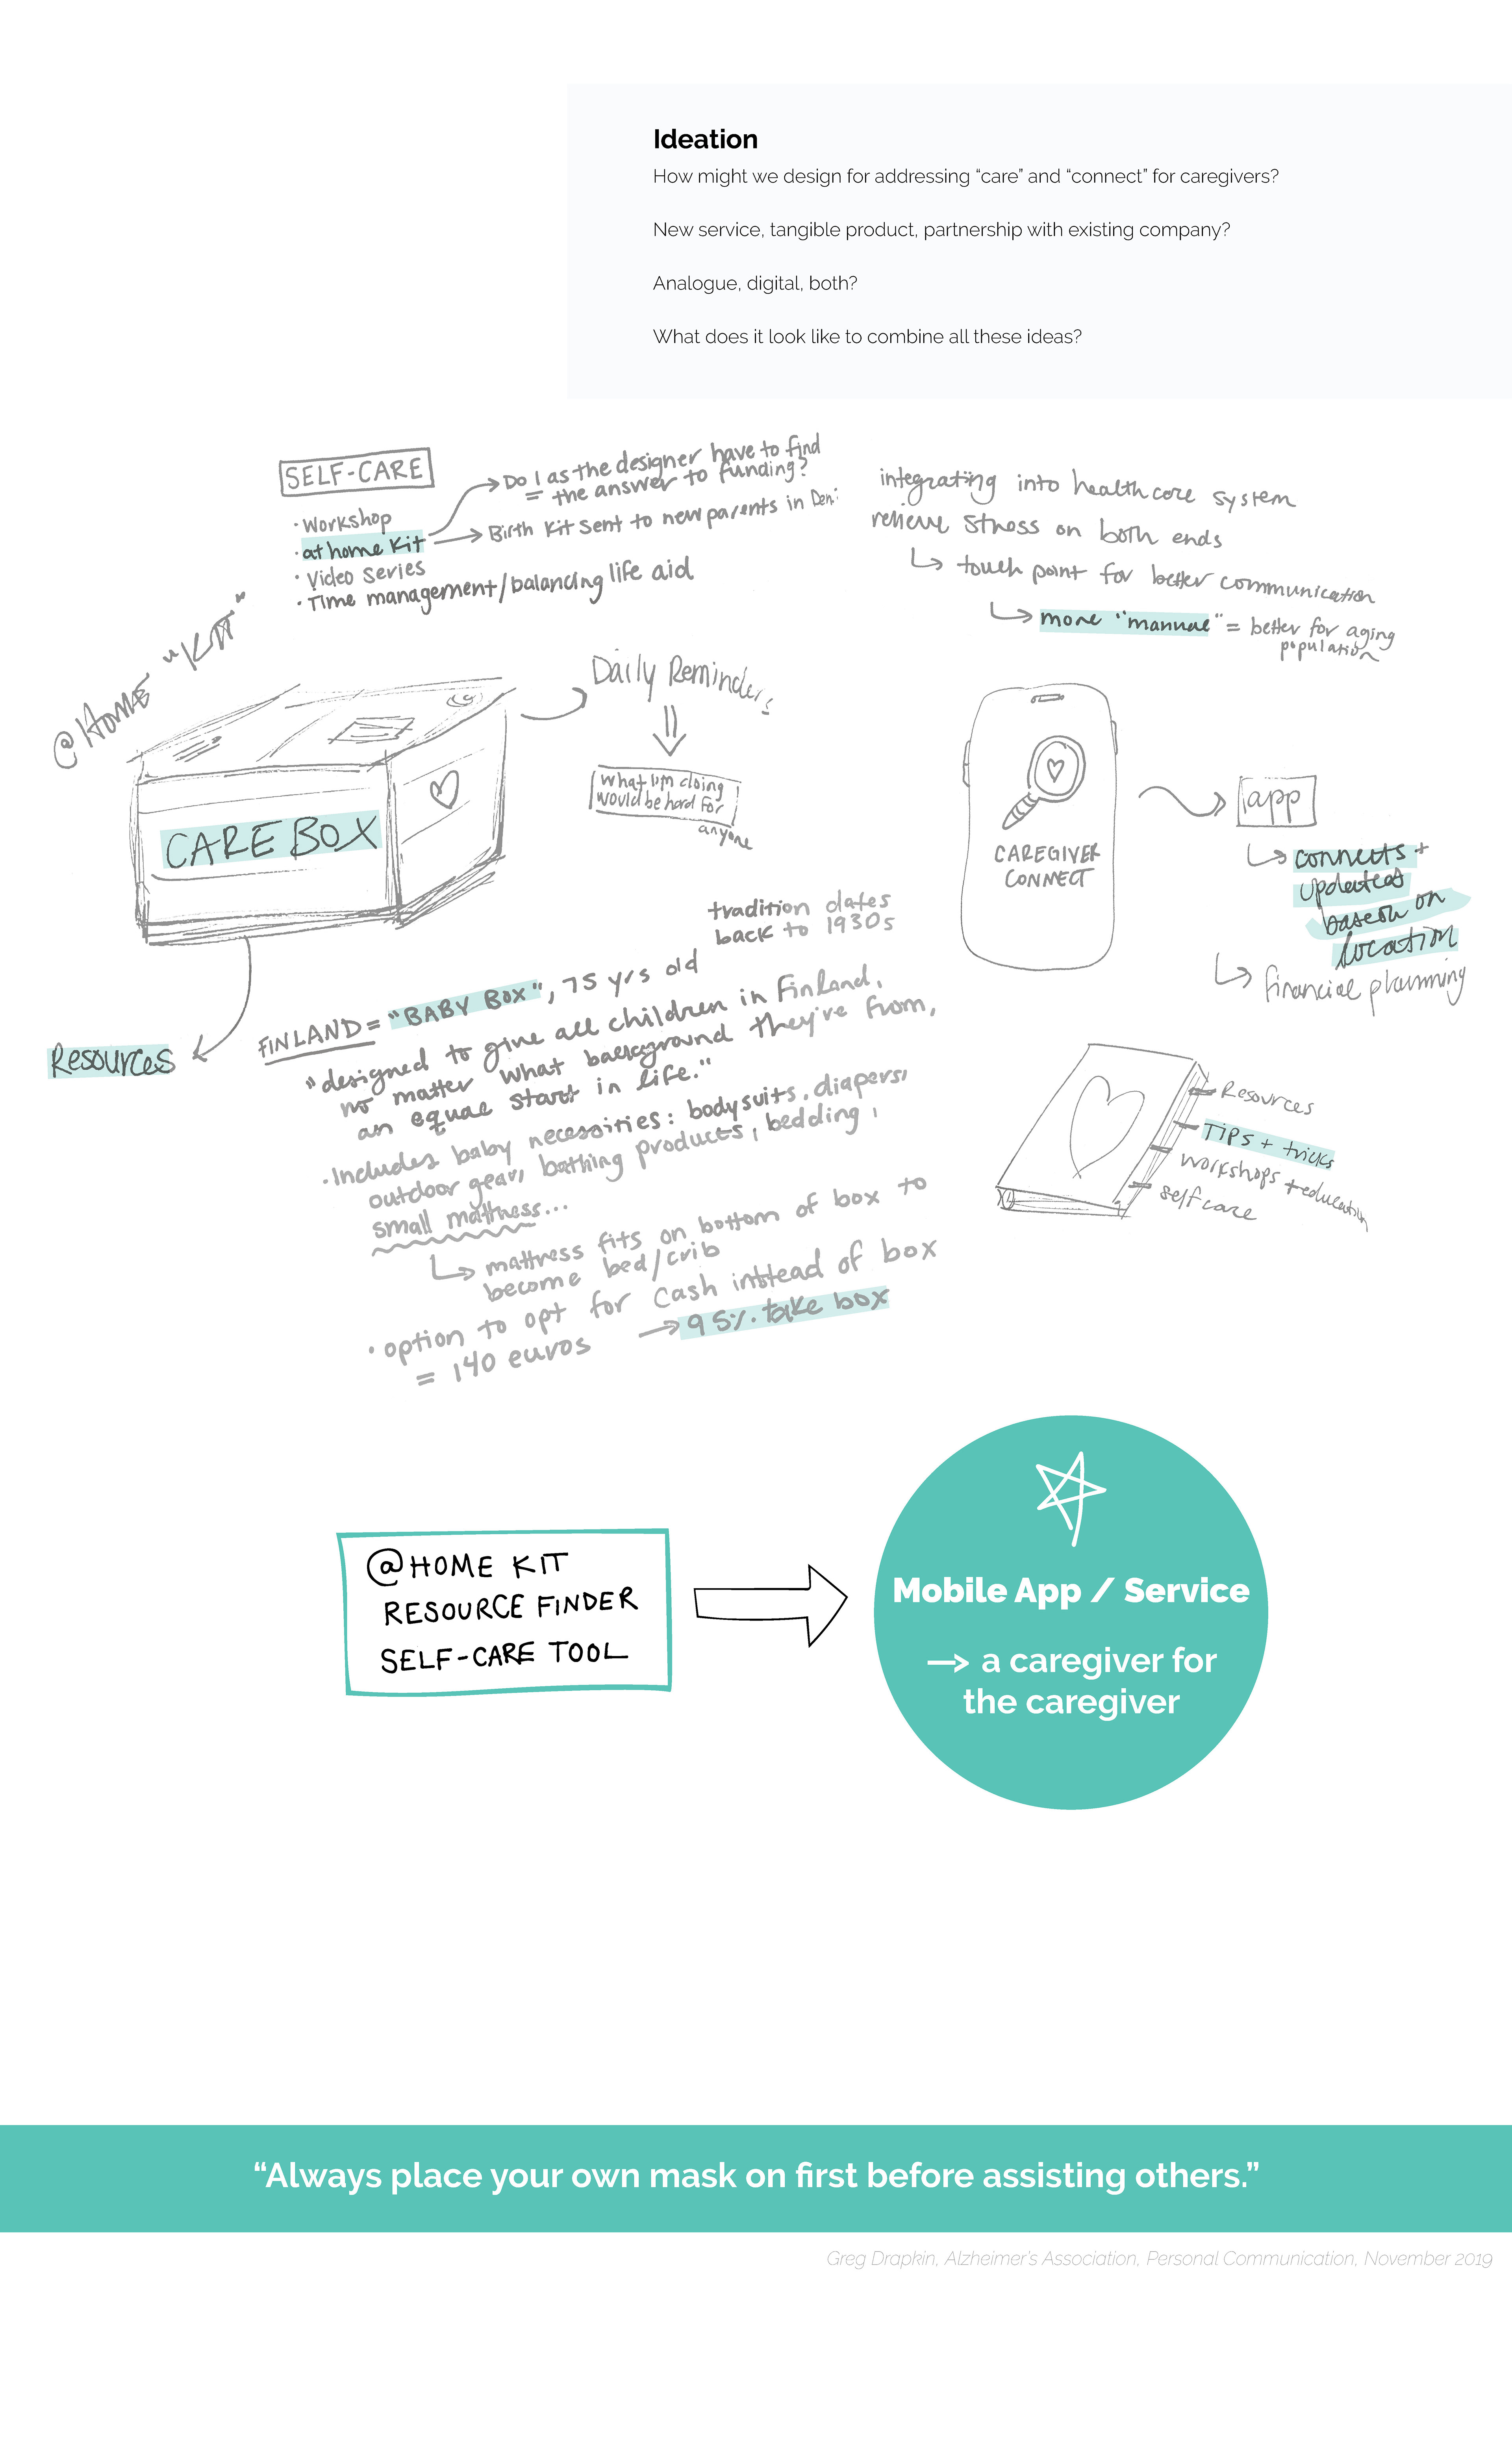 Ideation
How might we design for addressing “care” and “connect” for caregivers?
New service, tangible product, partnership with existing company?
Analogue, digital, both?
What does it look like to combine all these ideas?
SELF-CARE
• Workshop
• at home Kit
• Video Series
• Time management/balancing life aid
Do I as the designer have to find
= the answer to funding?
Birth Kit sent to new parents in Den
integrating into healthcare system
relieve stress on both ends
touch point for better communication
more "manual" = better for aging
population
@HOME "KIT"
CARE BOX
Daily Reminders
what I'm doing
would be hard for
anyone
CAREGIVER
CONNECT
app
connects +
updates
based on
location
financial planning
Resources
tradition dates
back to 1930s
FINLAND = "BABY BOX", 75 yrs old
"designed to give all children in Finland,
no matter what background they're from,
an equal start in life."
• Includes baby necessities: bodysuits, diapers,
outdoor gear, bathing products, bedding,
small mattress...
mattress fits on bottom of box to
become bed/crib
• option to opt for cash instead of box
= 140 euros → 95% take box
Resources
Tips + tricks
workshops + education
selfcare
@HOME KIT
RESOURCE FINDER
SELF-CARE TOOL
Mobile App / Service
—> a caregiver for
the caregiver
“Always place your own mask on first before assisting others.”
Greg Drapkin, Alzheimer's Association, Personal Communication, November 2019